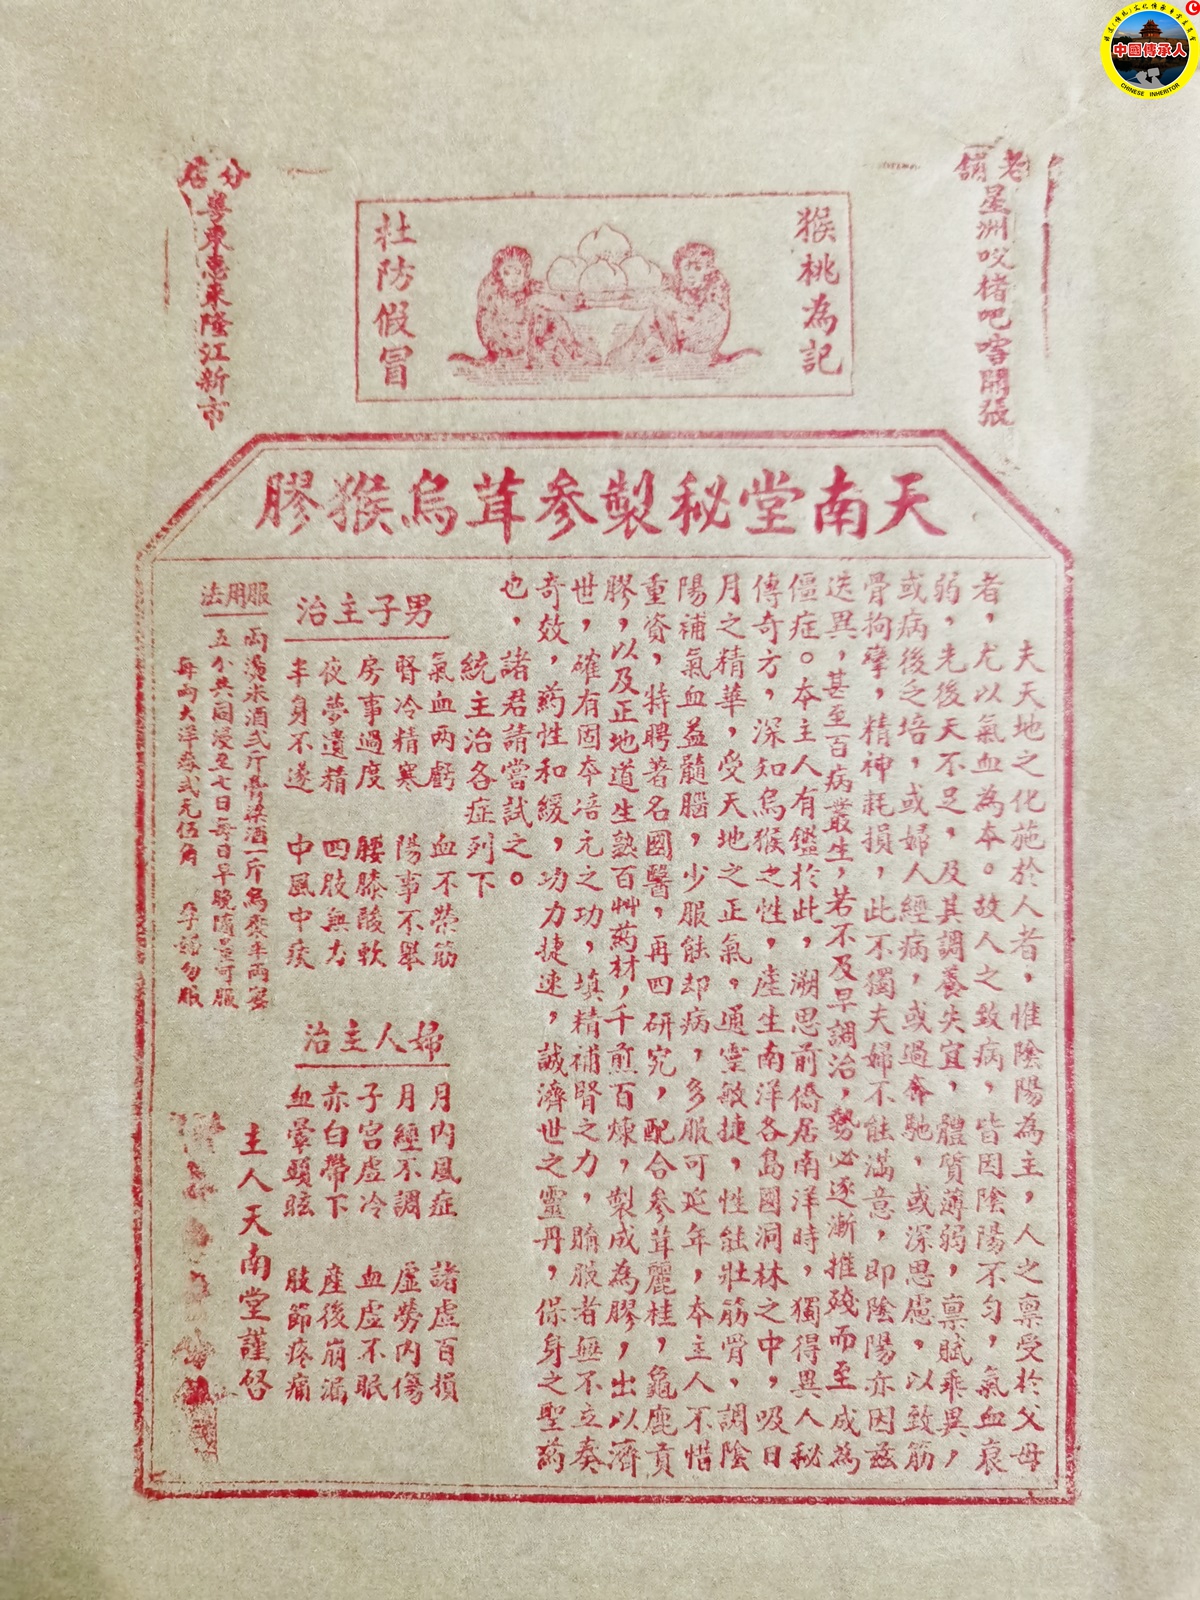 中國傳承人
CHINESE INHERITOR
老舖
星洲咬楮吧嘮開張
猴桃為記
杜防假冒
分店
粵東惠來隆江新市
天南堂秘製參茸烏猴膠
夫天地之化施於人者，惟陰陽為主，人之稟受於父母
者，尤以氣血為本。故人之致病，皆因陰陽不匀，氣血衰
弱，先後天不足，及其調養失宜，體質薄弱，稟賦乖異，
或病後之培，或婦人經病，或過奔馳，或深思慮，以致筋
骨拘攣，精神耗損，此不獨夫婦不能滿意，即陰陽亦因茲
迭異，甚至百病叢生，若不及早調治，勢必逐漸推殘而至成為
僵症。本主人有鑑於此，溯思前僑居南洋時，獨得異人秘
傳奇方，深知烏猴之性，產生南洋各島國洞林之中，吸日
月之精華，受天地之正氣，通靈敏捷，性能壯筋骨，調陰
陽補氣血益髓腦，少服能却病，多服可延年，本主人不惜
重資，特聘著名國醫，再四研究，配合參茸麗桂，龜鹿貢
膠，以及正地道生熟百艸葯材，千煎百煉，製成為膠，出以濟
世，確有固本培元之功，填精補腎之力，購服者無不立奏
奇效，葯性和緩，功力捷速，誠濟世之靈丹，保身之聖葯
也，諸君請嘗試之。
統主治各症列下
男子主治
氣血兩虧 血不荣筋
腎冷精寒 陽事不舉
房事過度 腰膝酸軟
夜夢遺精 四肢無力
半身不遂 中風中痰
婦人主治
月內風症 諸虛百損
月經不調 虛勞內傷
子宮虛冷 血虛不眠
赤白帶下 產後崩漏
血暈頭眩 肢節疼痛
服用法
両燙米酒弍斤膏粱酒一斤烏膠半両蜜
五分共同浸至七日每日早晚隨量可服
每両大洋弍元伍角 孕婦勿服
主人天南堂謹啓